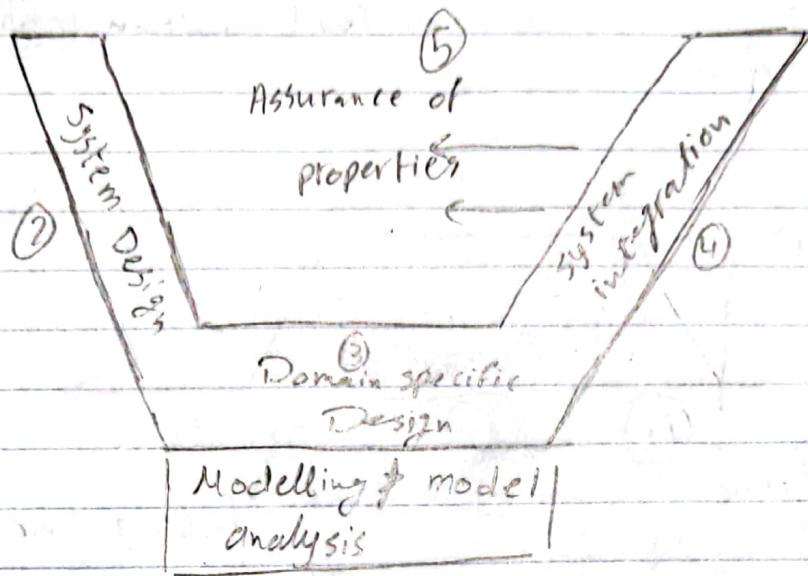 ⑤
Assurance of
properties
System Design
②
System
integration
④
③
Domain specific
Design
Modelling & model
analysis